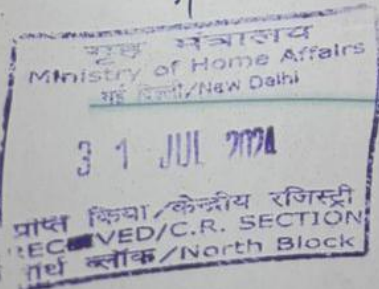 गृह मंत्रालय
Ministry of Home Affairs
नई दिल्ली/New Delhi
3 1 JUL 2024
प्राप्त किया/केन्द्रीय रजिस्ट्री
RECEIVED/C.R. SECTION
नार्थ ब्लॉक/North Block